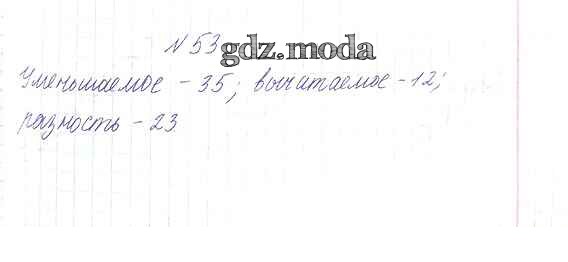 № 53 gdz.moda
Уменьшаемое - 35; вычитаемое - 12;
разность - 23